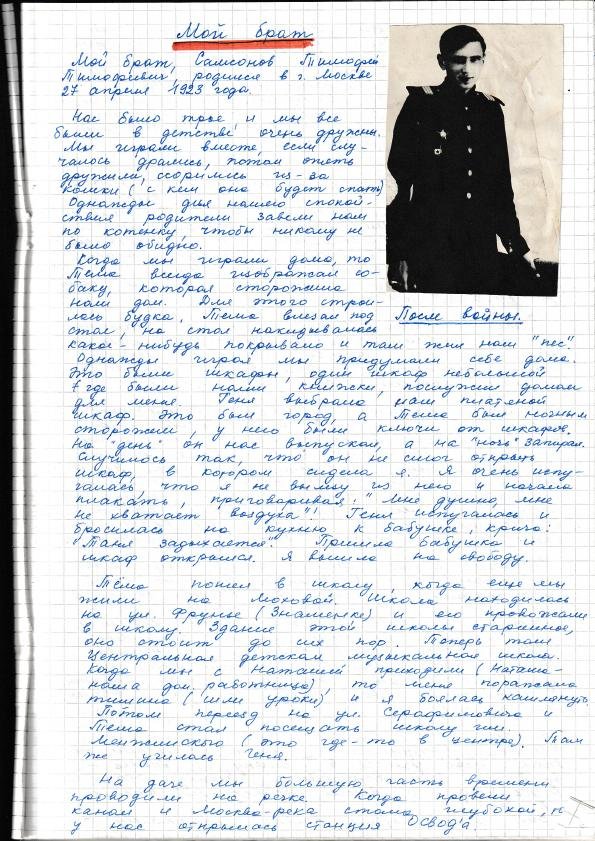 Мой брат
Мой брат, Самсонов Тимофей
Тимофеевич, родился в г. Москве
27 апреля 1923 года.
Нас было трое, и мы все
были в детстве очень дружны.
Мы играли вместе, если слу-
чалось дрались, потом опять
дружили, ссорились из-за
кошки (с кем она будет спать)
Однажды для нашего спокой-
ствия родители завели нам
по котенку, чтобы никому не
было обидно.
Когда мы играли дома, то
Тёма всегда изображал со-
баку, которая сторожила
наш дом. Для этого строи-
лась будка, Тёма влезал под
стол, на стол накидывалась
какое-нибудь покрывало и там жил наш "пес".
После войны.
Однажды играя мы придумали себе дома.
Это были шкафы, один шкаф небольшой
где были наши книжки, послужил домом
для меня. Геня выбрала нам платяной
шкаф. Это был город, а Тёма был ночным
сторожем, у него были ключи от шкафов.
На "день" он нас выпускал, а на "ночь" запирал.
Случилось так, что он не смог открыть
шкаф, в котором сидела я. Я очень испу-
галась, что я не выйду из него и начала
плакать, приговаривая: "Мне душно, мне
не хватает воздуха"! Геня испугалась и
бросилась на кухню к бабушке, крича:
"Таня задыхается". Пришла бабушка и
шкаф открылся. Я вышла на свободу.
Тёма пошел в школу, когда еще мы
жили на Моховой. Школа находилась
на ул. Фрунзе (Знаменке) и его провожали
в школу. Здание этой школы старинное,
оно стоит до их пор. Теперь там
Центральная детская музыкальная школа.
Когда мы с Наташей приходили (Наташа-
наша дом. работница), то меня поражала
тишина (шли уроки) и я боялась кашлянуть
Потом переезд на ул. Серафимовича и
Тёма стал посещать школу им.
Менжинского (это где-то в центре). Там
же училась Геня.
На даче мы большую часть времени
проводили на речке. Когда провели
канал и Москва-река стала глубокой,
у нас открылась станция ОСВОД'а.
I